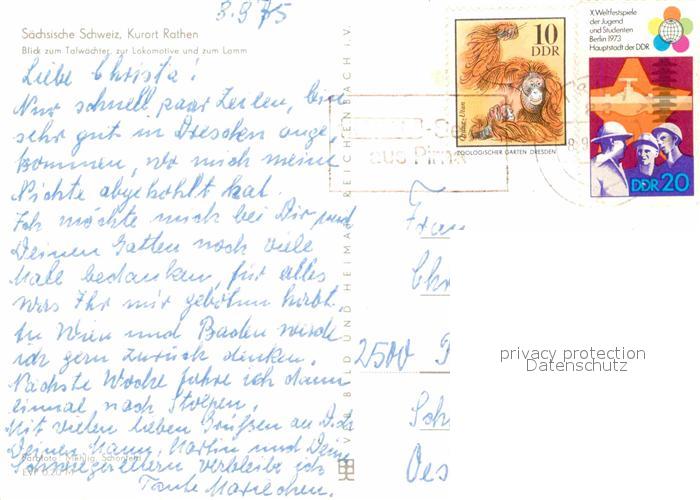 3.9.75
Sächsische Schweiz, Kurort Rathen
Blick zum Talwächter, zur Lokomotive und zum Lamm
Liebe Christa!
Nur schnell paar Zeilen, bin
sehr gut in Dresden ange,
kommen, wo mich meine
Nichte abgehohlt hat.
Ich möchte mich bei Dir und
Deinen Gatten noch viele
Male bedanken, für alles
was Ihr mir geboten habt.
An Wien und Baden werde
ich gern zurück denken.
Nächste Woche fahre ich dann
einmal nach Stolpen.
Mit vielen lieben Grüßen an Dich
Deinen Mann, Martin und Deine
Schwiegereltern verbleibe ich
Tante Mariechen.
Farbfoto: Mehlig, Schönfeld
REICHENBACH I.V.
VER BILD UND HEIMAT
10
DDR
Orang-Utan
ZOOLOGISCHER GARTEN DRESDEN
X. Weltfestspiele
der Jugend
und Studenten
Berlin 1973
Hauptstadt der DDR
DDR 20
aus Pirna
Frau
Chr
2500
Sch
Oes
privacy protection
Datenschutz